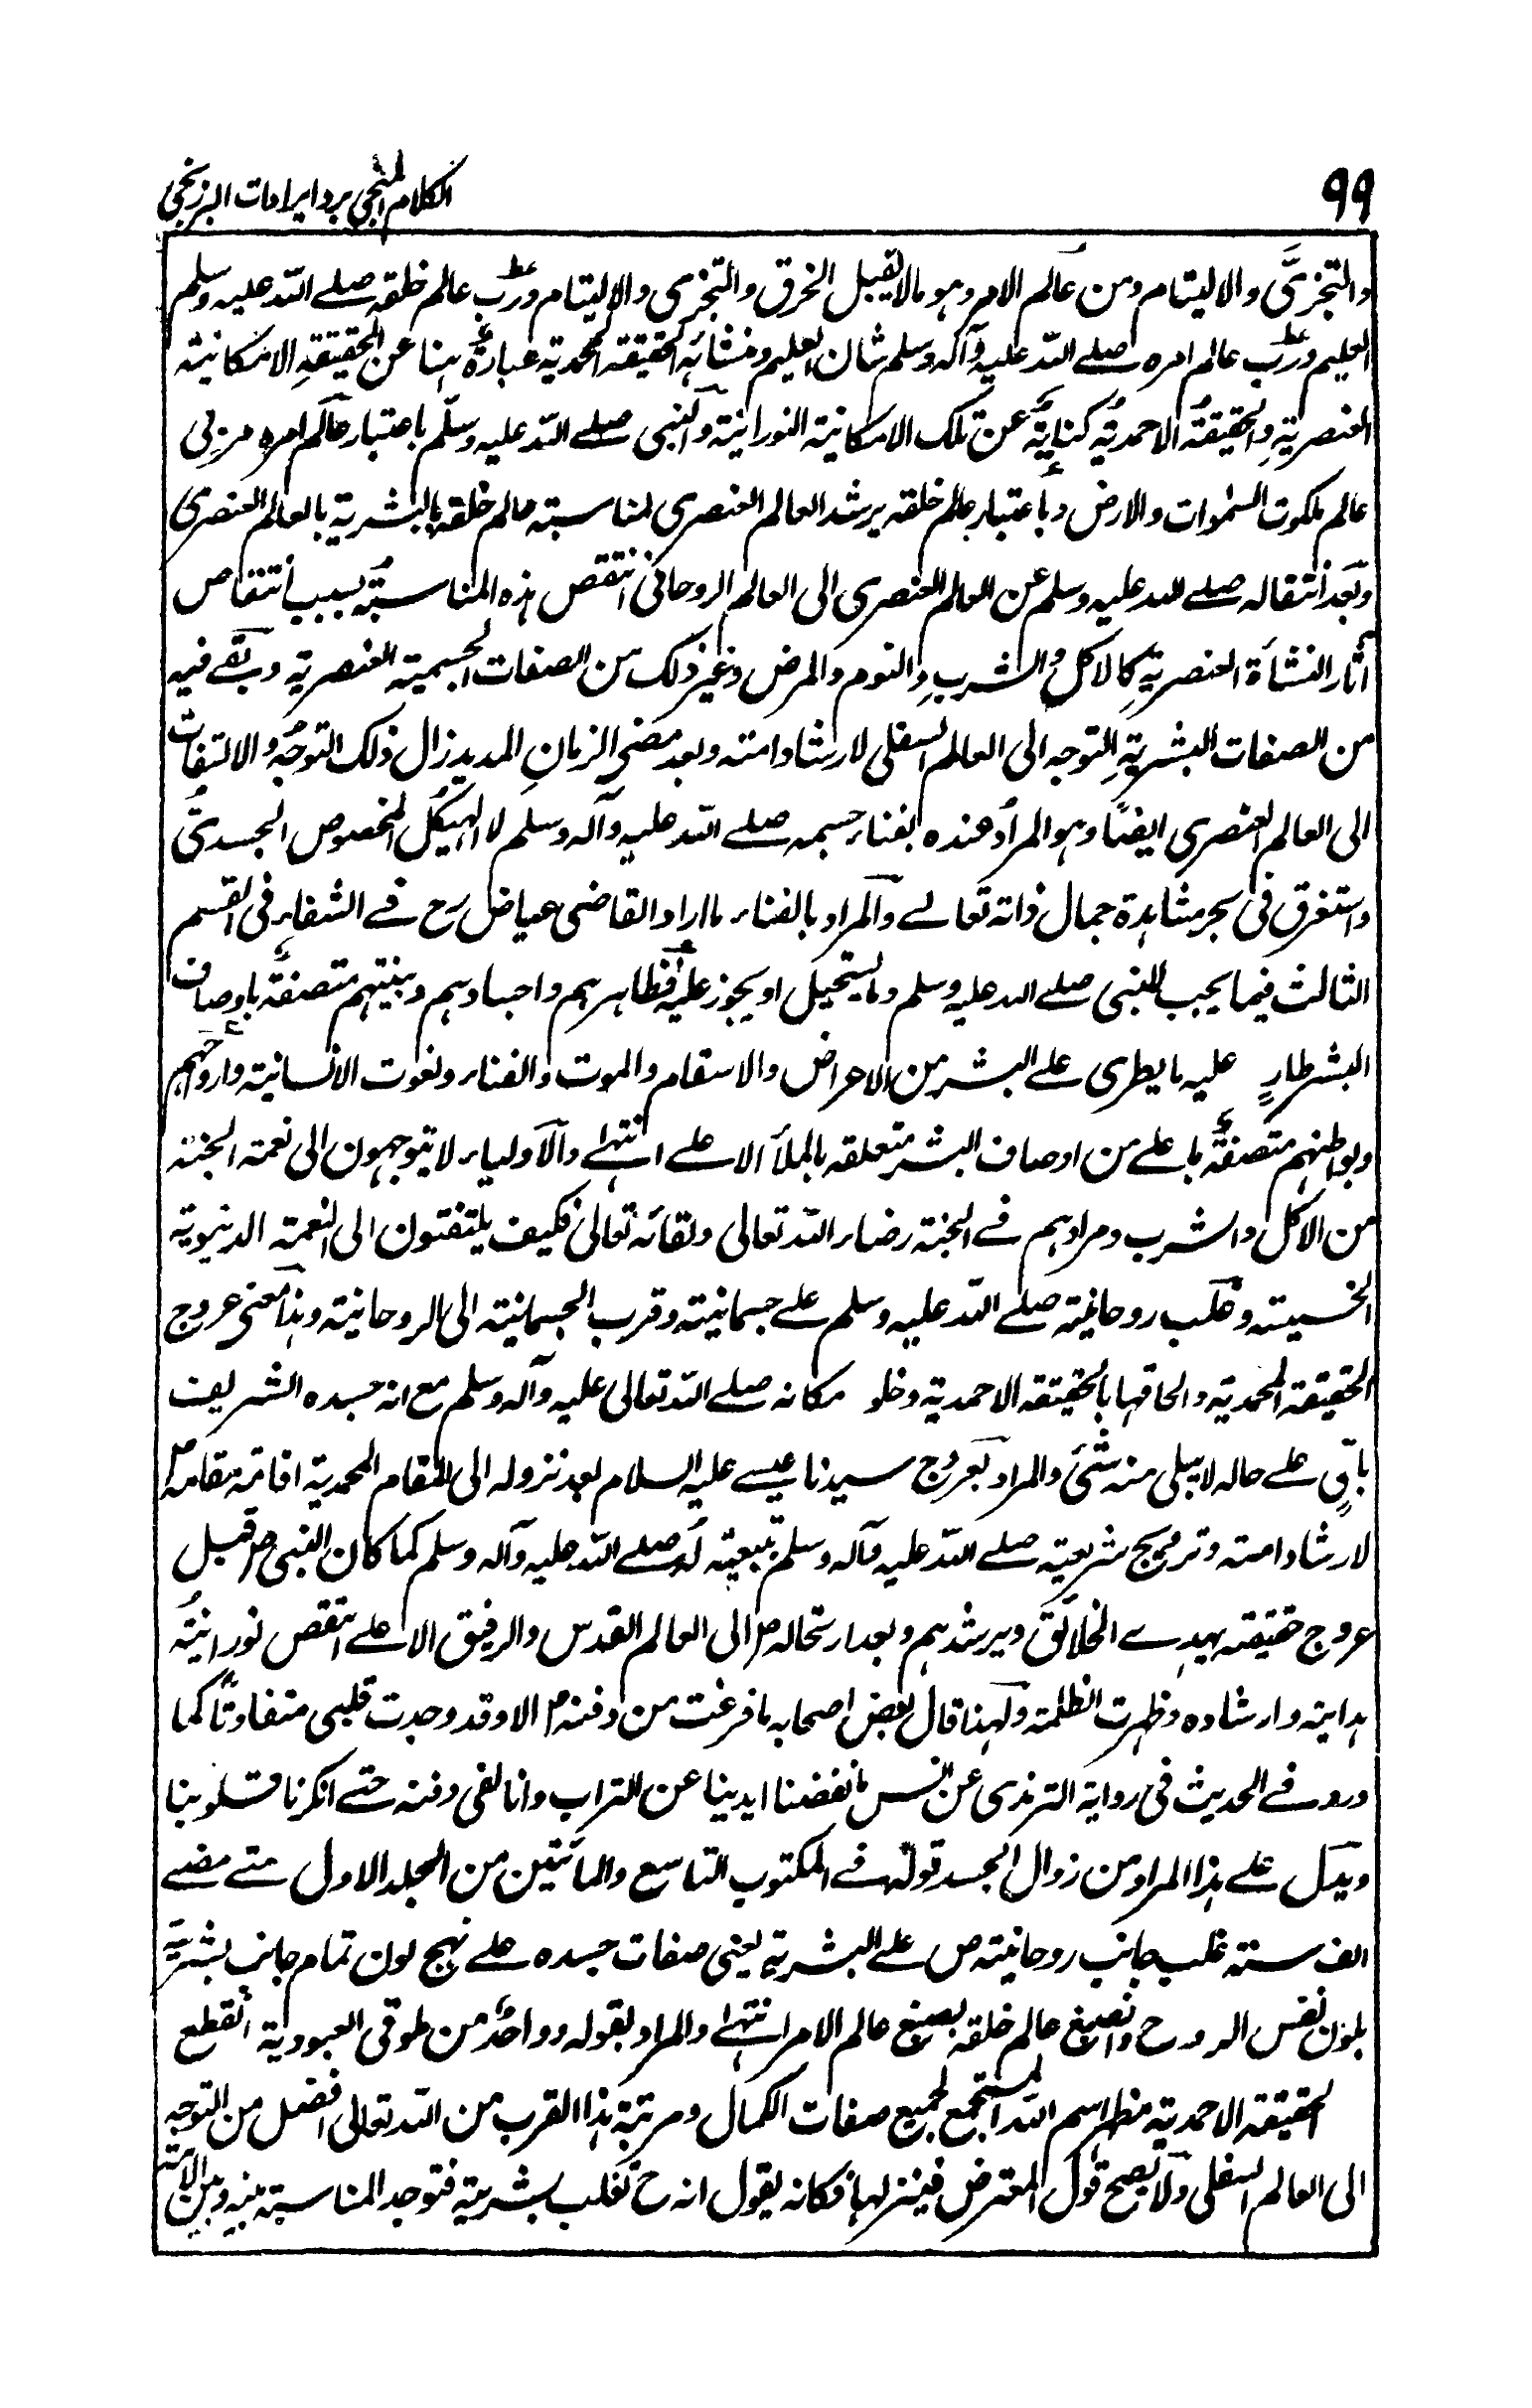 ٩٩
الكلام المنجي برد ايرادات البرزنجي
والتجزى والاليتام ومن عالم الامر وهو مالا يقبل الخرق والتجزى والاليتام ورب عالم خلقه صلے الله عليه وسلم
العليم ورب عالم امره صلے الله عليه وآله وسلم شان العليم ومنشائه الحقيقة المحمدية عبارة هنا عن الحقيقة الامكانية
العنصرية والحقيقة الاحمدية كناية عن تلك الامكانية النورانية والنبى صلے الله عليه وسلم باعتبار عالم امره مربى
عالم ملكوت السموات والارض وباعتبار عالم خلقه يرشد العالم العنصرى لمناسبة عالم خلقه بالبشرية بالعالم العنصرى
وبعد انتقاله صلے الله عليه وسلم عن العالم العنصرى الى العالم الروحانى انتقص هذه المناسبة بسبب انتقاص
آثار النشأة العنصرية كالاكل والشرب والنوم والمرض وغير ذلك من الصفات الجسمية العنصرية وبقے فيه
من الصفات البشرية التوجه الى العالم السفلى لارشاد امته وبعد مضى الزمان المديد زال ذلك التوجه والالتفات
الى العالم العنصرى ايضا وهو المراد عنده بفناء جسمه صلے الله عليه وآله وسلم لا الهيكل المخصوص الجسدى
واستغرق فى بحر مشاهدة جمال ذاته تعالے والمراد بالفناء ما اراد القاضى عياض رح فے الشفاء فى القسم
الثالث فيما يجب للنبى صلے الله عليه وسلم وما يستحيل او يجوز عليه فظاهرهم واجسادهم وبنيتهم متصفة باوصاف
البشر طار عليه ما يطرى علے البشر من الاعراض والاسقام والموت والفناء ونعوت الانسانية وارواحهم
وبواطنهم متصفة باعلے من اوصاف البشر متعلقة بالملأ الاعلے انتهے والاولياء لا يتوجهون الى نعمة الجنة
من الاكل والشرب ومرادهم فے الجنة رضاء الله تعالى ولقائه تعالى فكيف يلتفتون الى النعمة الدنيوية
الخسيسة وغلب روحانية صلے الله عليه وسلم علے جسمانيته وقرب الجسمانية الى الروحانية وهذا معنى عروج
الحقيقة المحمدية والحاقها بالحقيقة الاحمدية وخلو مكانه صلے الله تعالى عليه وآله وسلم مع انه جسده الشريف
باق علے حاله لا يبلى منه شئ والمراد بعروج سيدنا عيسے عليه السلام بعد نزوله الى المقام المحمدية اقامة مقامه ص
لارشاد امته وترويج شريعته صلے الله عليه وآله وسلم بتبعيته له صلے الله عليه وآله وسلم كما كان النبى ص قبل
عروج حقيقته يهدے الخلائق ويرشدهم وبعد ارتحاله ص الى العالم القدس والرفيق الاعلے انتقص نورانية
هدايته وارشاده وظهرت الظلمة ولهذا قال بعض اصحابه ما فرغت من دفنه ص الا وقد وجدت قلبى متفاوتا كما
ورد فے الحديث فى رواية الترمذى عن انس ما نفضنا ايدينا عن التراب وانا لفى دفنه حتے انكرنا قلوبنا
ويدل علے هذا المراد من زوال الجسد قوله فے المكتوب التاسع والمأتين من المجلد الاول متے مضے
الف سنة غلب جانب روحانيته ص علے البشرية يعنى صفات جسده علے نهج لون تمام جانب بشريته
بلون نفس الروح وانصبغ عالم خلقه بصبغ عالم الامر انتهے والمراد بقوله وواحد من طوقى العبودية انقطع
الحقيقة الاحمدية مظهر اسم الله المستجمع لجميع صفات الكمال ومرتبة هذا القرب من الله تعالى افضل من التوجه
الى العالم السفلى ولا يصح قول المعترض فينزلها فكانه يقول انه ح تغلب بشريته فتوجد المناسبة بينه وبين الامة